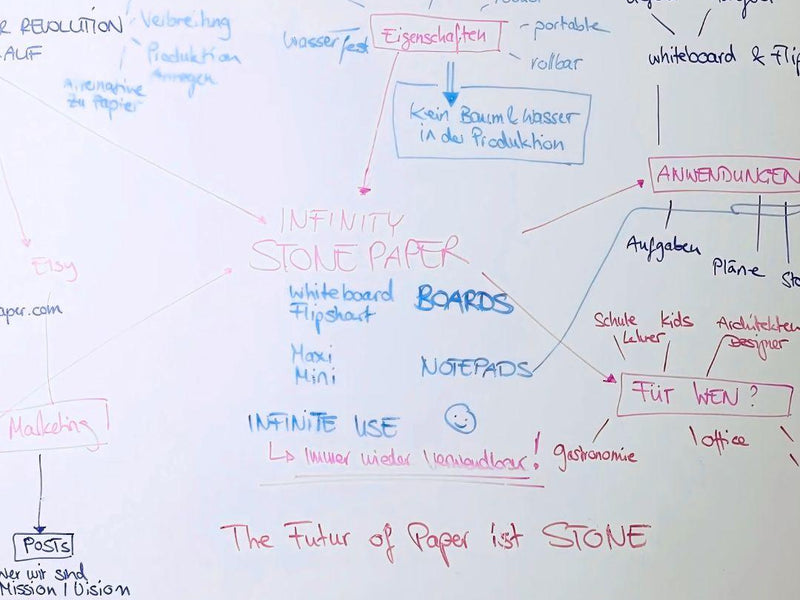 R REVOLUTION
AUF
Verbreitung
Produktion
Alternative
zu Papier
Wasserfest
Eigenschaften
portable
rollbar
Kein Baum & Wasser
in der Produktion
whiteboard & Flip
ANWENDUNGEN
Aufgaben
Pläne
Sto
INFINITY
STONE PAPER
Whiteboard BOARDS
Flipshart
Maxi
Mini
NOTEPADS
INFINITE USE
↳ Immer wieder Verwendbar!
Etsy
aper.com
Marketing
POSTS
Wer wir sind
Mission | Vision
Schule
Lehrer
Kids
Architekten
Designer
FÜR WEN?
gastronomie
office
The Futur of Paper ist STONE